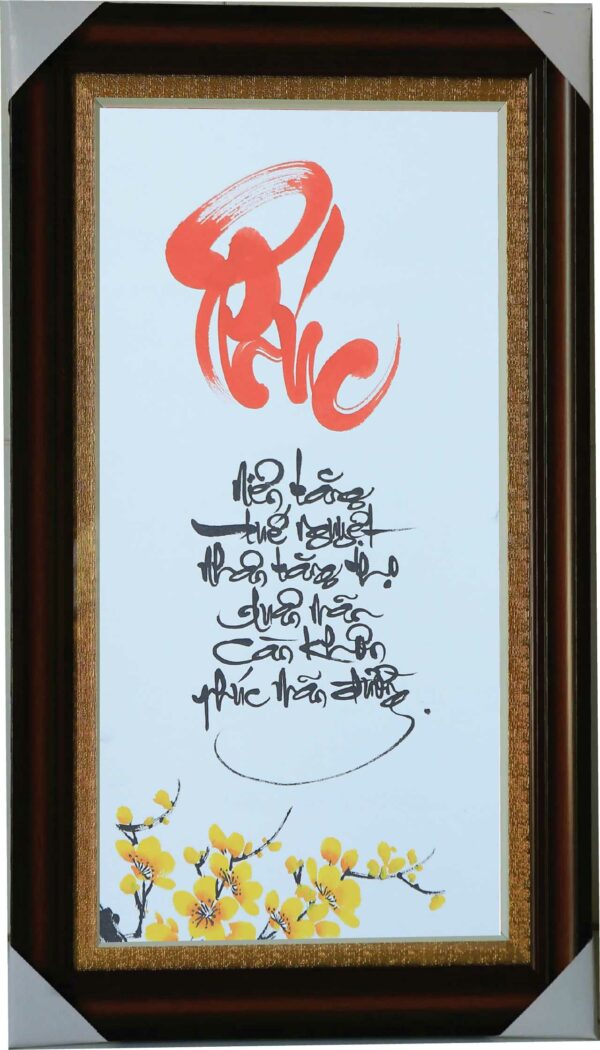 Phúc
Niên tăng
tuế nguyệt
nhân tăng thọ
xuân mãn
càn khôn
phúc mãn đường.